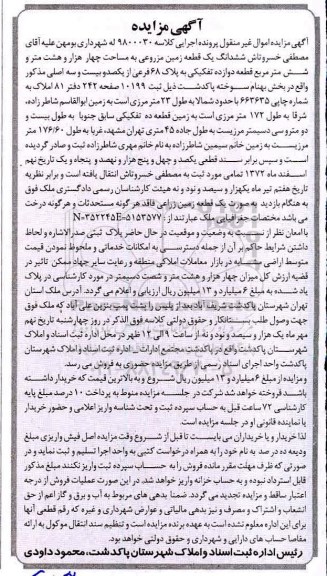 آگهی مزایده
آگهی مزایده اموال غیر منقول پرونده اجرایی کلاسه ۹۸۰۰۰۳۰ له شهرداری بومهن علیه آقای
مصطفی خسروتاش ششدانگ یک قطعه زمین مزروعی به مساحت چهار هزار و هشت متر و
شش متر مربع قطعه دوازده تفکیکی به پلاک ۶۸ فرعی از یکصدو بیست و سه اصلی مذکور
واقع در بخش بهنام سوخته پاکدشت ذیل ثبت ۱۰۱۹۹ صفحه ۲۴۲ دفتر ۸۱ املاک به
شماره چاپی ۶۶۳۶۳۵ با حدود شمالا به طول ۲۳ متر مرزی است به زمین ابوالقاسم شاطر زاده،
شرقا به طول ۱۷۲ متر مرزی است به زمین قطعه ده تفکیکی سابق جنوبا به طول بیست و
دو متر و سی دسیمتر مرزیست به طول جاده ۴۵ متری تهران مشهد، غربا به طول ۱۷۶/۶۰ متر
مرزیست به زمین خانم سیمین شاطرزاده به نام خانم مهری شاطرزاده ثبت و صادر گردیده
است و سپس برابر سند قطعی یکصد و چهل و پنج هزار و نهصد و پنجاه و یک تاریخ نهم
اسفند ماه ۱۳۷۲ تمامی مورد ثبت به مصطفی خسروتاش انتقال یافته است و برابر نظریه
تاریخ هفتم تیر ماه یکهزار و سیصد و نود و نه هیئت کارشناسان رسمی دادگستری ملک فوق
به هنگام بازدید به صورت یک قطعه زمین زراعی فاقد هر گونه مستحدثات و هر گونه درخت
می باشد مختصات جغرافیایی ملک عبارتند از : N-۳۵۲۲۴۵E-۵۱۵۳۵۷۷
با امعان نظر از نسبت به وضعیت و موقعیت در حال حاضر پلاک ثبتی صدرالاشاره و لحاظ
داشتن شرایط حاکم بر آن از جمله دسترسی به امکانات خدماتی و ملحوظ نمودن قیمت
متوسط اراضی مشابه در بازار معاملات املاکی منطقه و رعایت سایر جهاد ممکن تاثیر در
قضیه ارزش کل میزان چهار هزار و هشت متر و شصت دسیمتر در مورد کارشناسی در پلاک
یاد شده به مبلغ ۶ میلیارد و ۱۳ میلیون ریال ارزیابی و اعلام می گردد. آدرس ملک استان
تهران شهرستان پاکدشت شریف آباد بعد از پلیس راه پشت پمپ بنزین علی آباد که ملک فوق
جهت وصول طلب بستانکار و حقوق دولتی کلاسه فوق الذکر در روز چهارشنبه تاریخ نهم
مهر ماه یک هزار و سیصد و نود و نه از ساعت ۹ الی ۱۲ ظهر در محل اداره ثبت اسناد و املاک
شهرستان پاکدشت واقع در پاکدشت مجتمع ادارات ـ اداره ثبت اسناد و املاک شهرستان
پاکدشت واحد اجرای اسناد رسمی از طریق مزایده حضوری به فروش می رسد.
و مزایده از مبلغ ۶ میلیارد و ۱۳ میلیون ریال شروع و به بالاترین قیمت که خریدار داشته
باشد فروخته خواهد شد شرکت در جلسه مزایده منوط به پرداخت ۱۰ درصد مبلغ پایه
کارشناسی ۷۲ ساعت قبل به حساب سپرده ثبت و تحت شناسه واریز اعلامی و حضور خریدار
یا نماینده قانونی او در جلسه مزایده است.
لذا خریدار و یا خریداران می بایست تا قبل از شروع وقت مزایده اصل فیش واریزی مبلغ
ودیعه ده در صد به نام خود را به همراه درخواست کتبی به واحد اجرا تسلیم و ثبت نماید و در
صورتی که ظرف مهلت مقرر مانده فروش را به حساب سپرده ثبت واریز نکنند مبلغ مذکور
قابل استرداد نبوده و به حساب خزانه واریز خواهد شد. در این صورت عملیات فروش از درجه
اعتبار ساقط و مزایده تجدید می گردد. ضمنا بدهی های مربوط به آب و برق و گاز اعم از حق
انشعاب و اشتراک و مصرف و نیز بدهی مالیاتی و عوارض شهرداری و غیره که رقم قطعی آنها
برای این اداره معلوم شده است به عهده برنده مزایده است و تنظیم سند انتقال موکول به ارائه
مفاصا حساب های دارایی و شهرداری و حقوق دولتی خواهد بود.
رئیس اداره ثبت اسناد و املاک شهرستان پاکدشت، محمود داودی